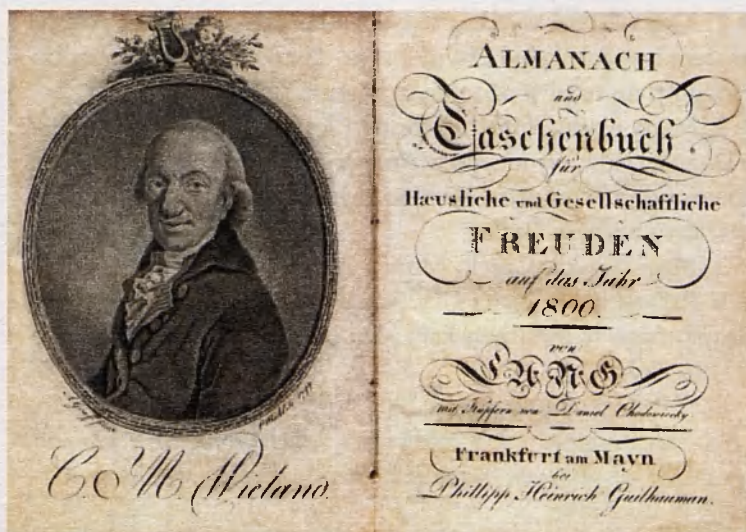 C. M. Wieland.
ALMANACH
und
Taschenbuch
für
Hæusliche und Gesellschaftliche
FREUDEN
auf das Jahr
1800.
von
LANG
mit Kupfern von Daniel Chodowiecky
Frankfurt am Mayn
bei
Philipp Heinrich Guilhauman.